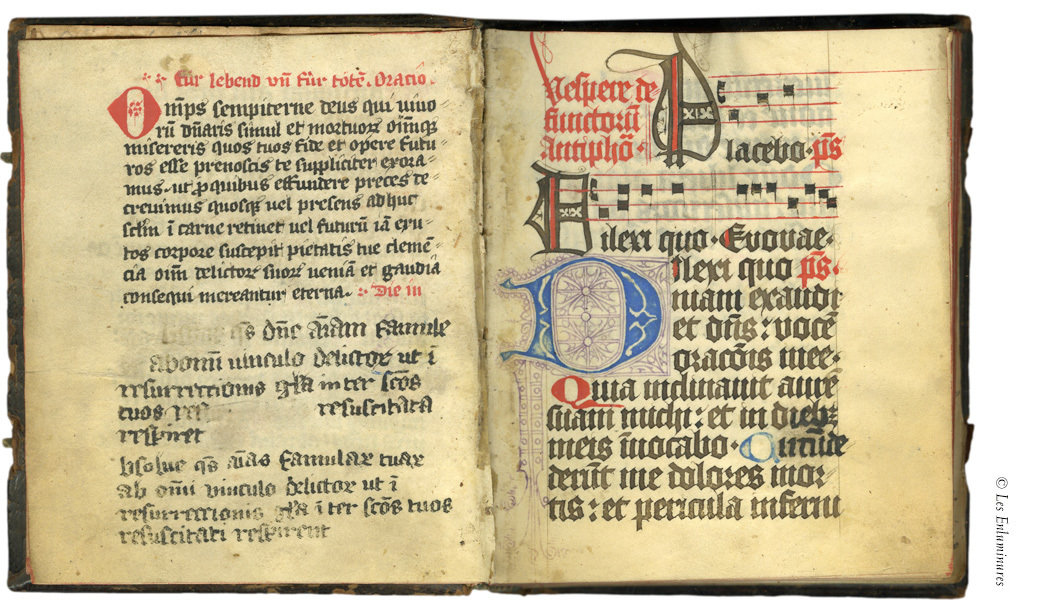 Fur lebend vn̄ für totē. Oracio.
Om̄ps sempiterne deus qui viuo
rū dn̄aris simul et mortuoꝝ oim̄qꝫ
misereris quos tuos fide et opere futu
ros esse prenoscis te suppliciter exora
mus. ut ꝓ quibus effundere preces de
creuimus quosqꝫ uel presens adhuc
sclm̄ ī carne retinet uel futurū iā exu
tos corpore suscepit pietatis tue clemē
cia oim̄ delictoꝝ suoꝝ veniā et gaudia
consequi mereantur eterna. Die in
qs̄ dn̄e aīam famule
ab omī vinculo delictoꝝ ut ī
resurrectionis gl̄ia inter scōs
tuos res resuscitata
respiret
bsolue qs̄ aīas famulaꝝ tuaꝝ
ab omī vinculo delictoꝝ ut ī
resurrectionis gl̄ia ī ter scōs tuos
resuscitati respirent
Vespere de
functorū
Antiphō
Placebo. ps̄
Dilexi quo. Evovae.
Dilexi quo ps̄.
niam exaudi
et dn̄s: vocē
oracōis mee.
Quia inclinauit aurē
suam michi: et in diebꝫ
meis īuocabo. Circūde
derūt me dolores mor
tis: et pericula inferni
© Les Enluminures